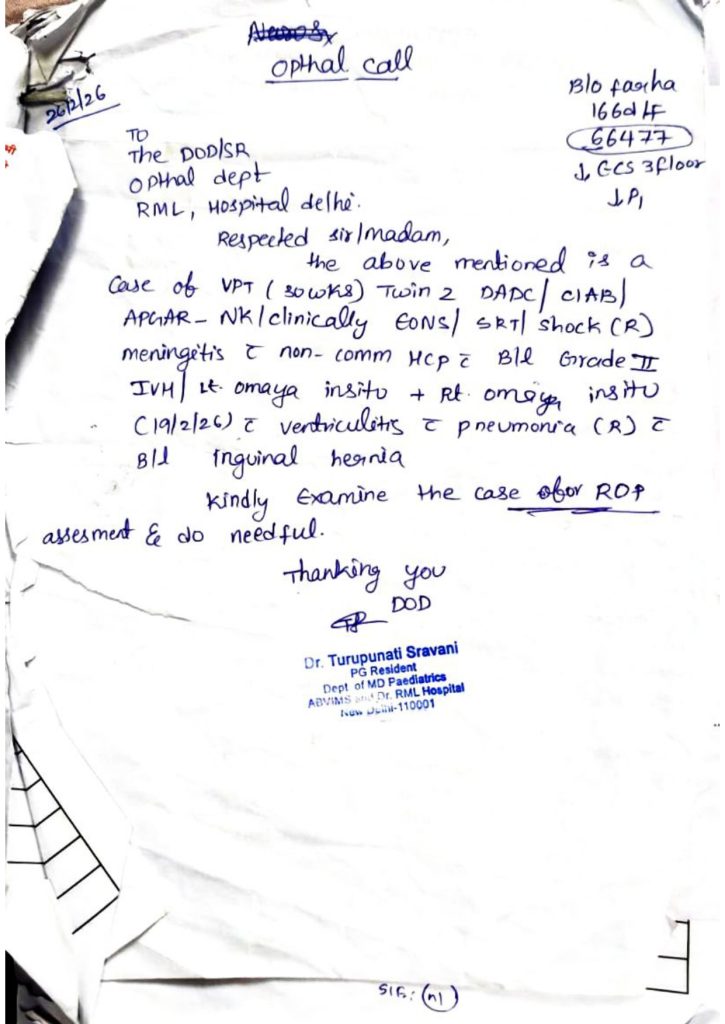 Opthal call
26/2/26
B/o farha
166d/F
66477
↓ GCS 3floor
↓ P1
TO
The DOD/SR
Opthal dept
RML, Hospital delhi.
Respected sir/madam,
the above mentioned is a
case of VPT (30wks) Twin 2 DADC/ CIAB/
APGAR- NK/clinically EONS/ SRT/ shock (R)
meningitis c̄ non-comm HCP c̄ B/l Grade II
IVH/ Lt. omaya insitu + Rt. omaya insitu
(19/2/26) c̄ ventriculitis c̄ pneumonia (R) c̄
B/l Inguinal hernia
Kindly Examine the case for ROP
assesment & do needful.
Thanking you
DOD
Dr. Turupunati Sravani
PG Resident
Dept of MD Paediatrics
ABVIMS and Dr. RML Hospital
New Delhi-110001